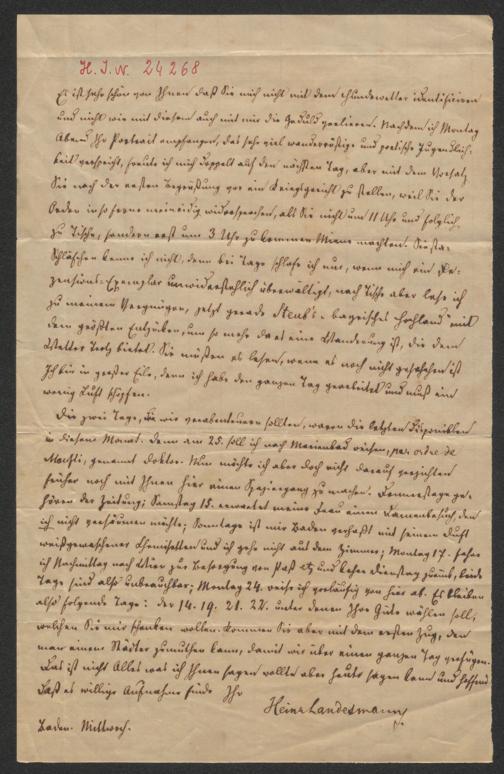 H. I. N. 24268
Es ist sehr schön von Ihnen daß Sie mich nicht mit dem Hundewetter identifiziren
und nicht wie mit diesem auch mit mir die Geduld verlieren. Nachdem ich Montag
Abend Ihr Portrait empfangen, das sehr viel wanderrüstige und poetische Jugendlich-
keit verspricht, freute ich mich doppelt auf den nächsten Tag, aber mit dem Vorsatz
Sie nach der ersten Begrüßung vor ein Kriegsgericht zu stellen, weil Sie der
Ordre insoferne meineidig widersprochen, als Sie nicht um 11 Uhr und folglich
zu Tische, sondern erst um 3 Uhr zu kommen Miene machten. Siesta-
Schläfchen kenne ich nicht, denn bei Tage schlafe ich nur, wenn mich ein Re-
zensions-Exemplar unwiderstehlich überwältigt, nach Tische aber lese ich
zu meinem Vergnügen, jetzt gerade Steub's "bayrisches Hochland" mit
dem größten Entzücken, um so mehr da es eine Wanderung ist, die dem
Wetter Trotz bietet. Sie müßten es lesen, wenn es noch nicht geschehen ist
Ich bin in großer Eile, denn ich habe den ganzen Tag gearbeitet und muß ein
wenig Luft schöpfen.
Die zwei Tage, die wir verabenteuern sollten, waren die letzten disponiblen
in diesem Monat. Denn am 25. soll ich nach Marienbad reisen, par ordre de
Mufti, genannt Doktor. Nun möchte ich aber doch nicht darauf verzichten
früher noch mit Ihnen hier einen Spaziergang zu machen. Donnerstage ge-
hören der Zeitung; Samstag 15. erwartet meine Frau einen Damenbesuch den
ich nicht versäumen möchte; Sonntags ist mir Baden verhaßt mit seinem Duft
weißgewaschener Chemisetten und ich gehe nicht aus dem Zimmer; Montag 17. fahre
ich Nachmittag nach Wien zur Besorgung von Paß etc und kehre Dienstag zurück, beide
Tage sind also unbrauchbar; Montag 24. reise ich vorläufig von hier ab. Es bleiben
also folgende Tage: der 14. 19. 21. 22. unter denen Ihre Güte wählen soll,
welchen Sie mir schenken wollen. Kommen Sie aber mit dem ersten Zug, den
man einem Städter zumuthen kann, damit wir über einen ganzen Tag verfügen.
Das ist nicht Alles was ich Ihnen sagen wollte aber heute sagen kann und hoffend
daß es willige Aufnahme finde Ihr
Heinr Landesmann
Baden. Mittwoch.